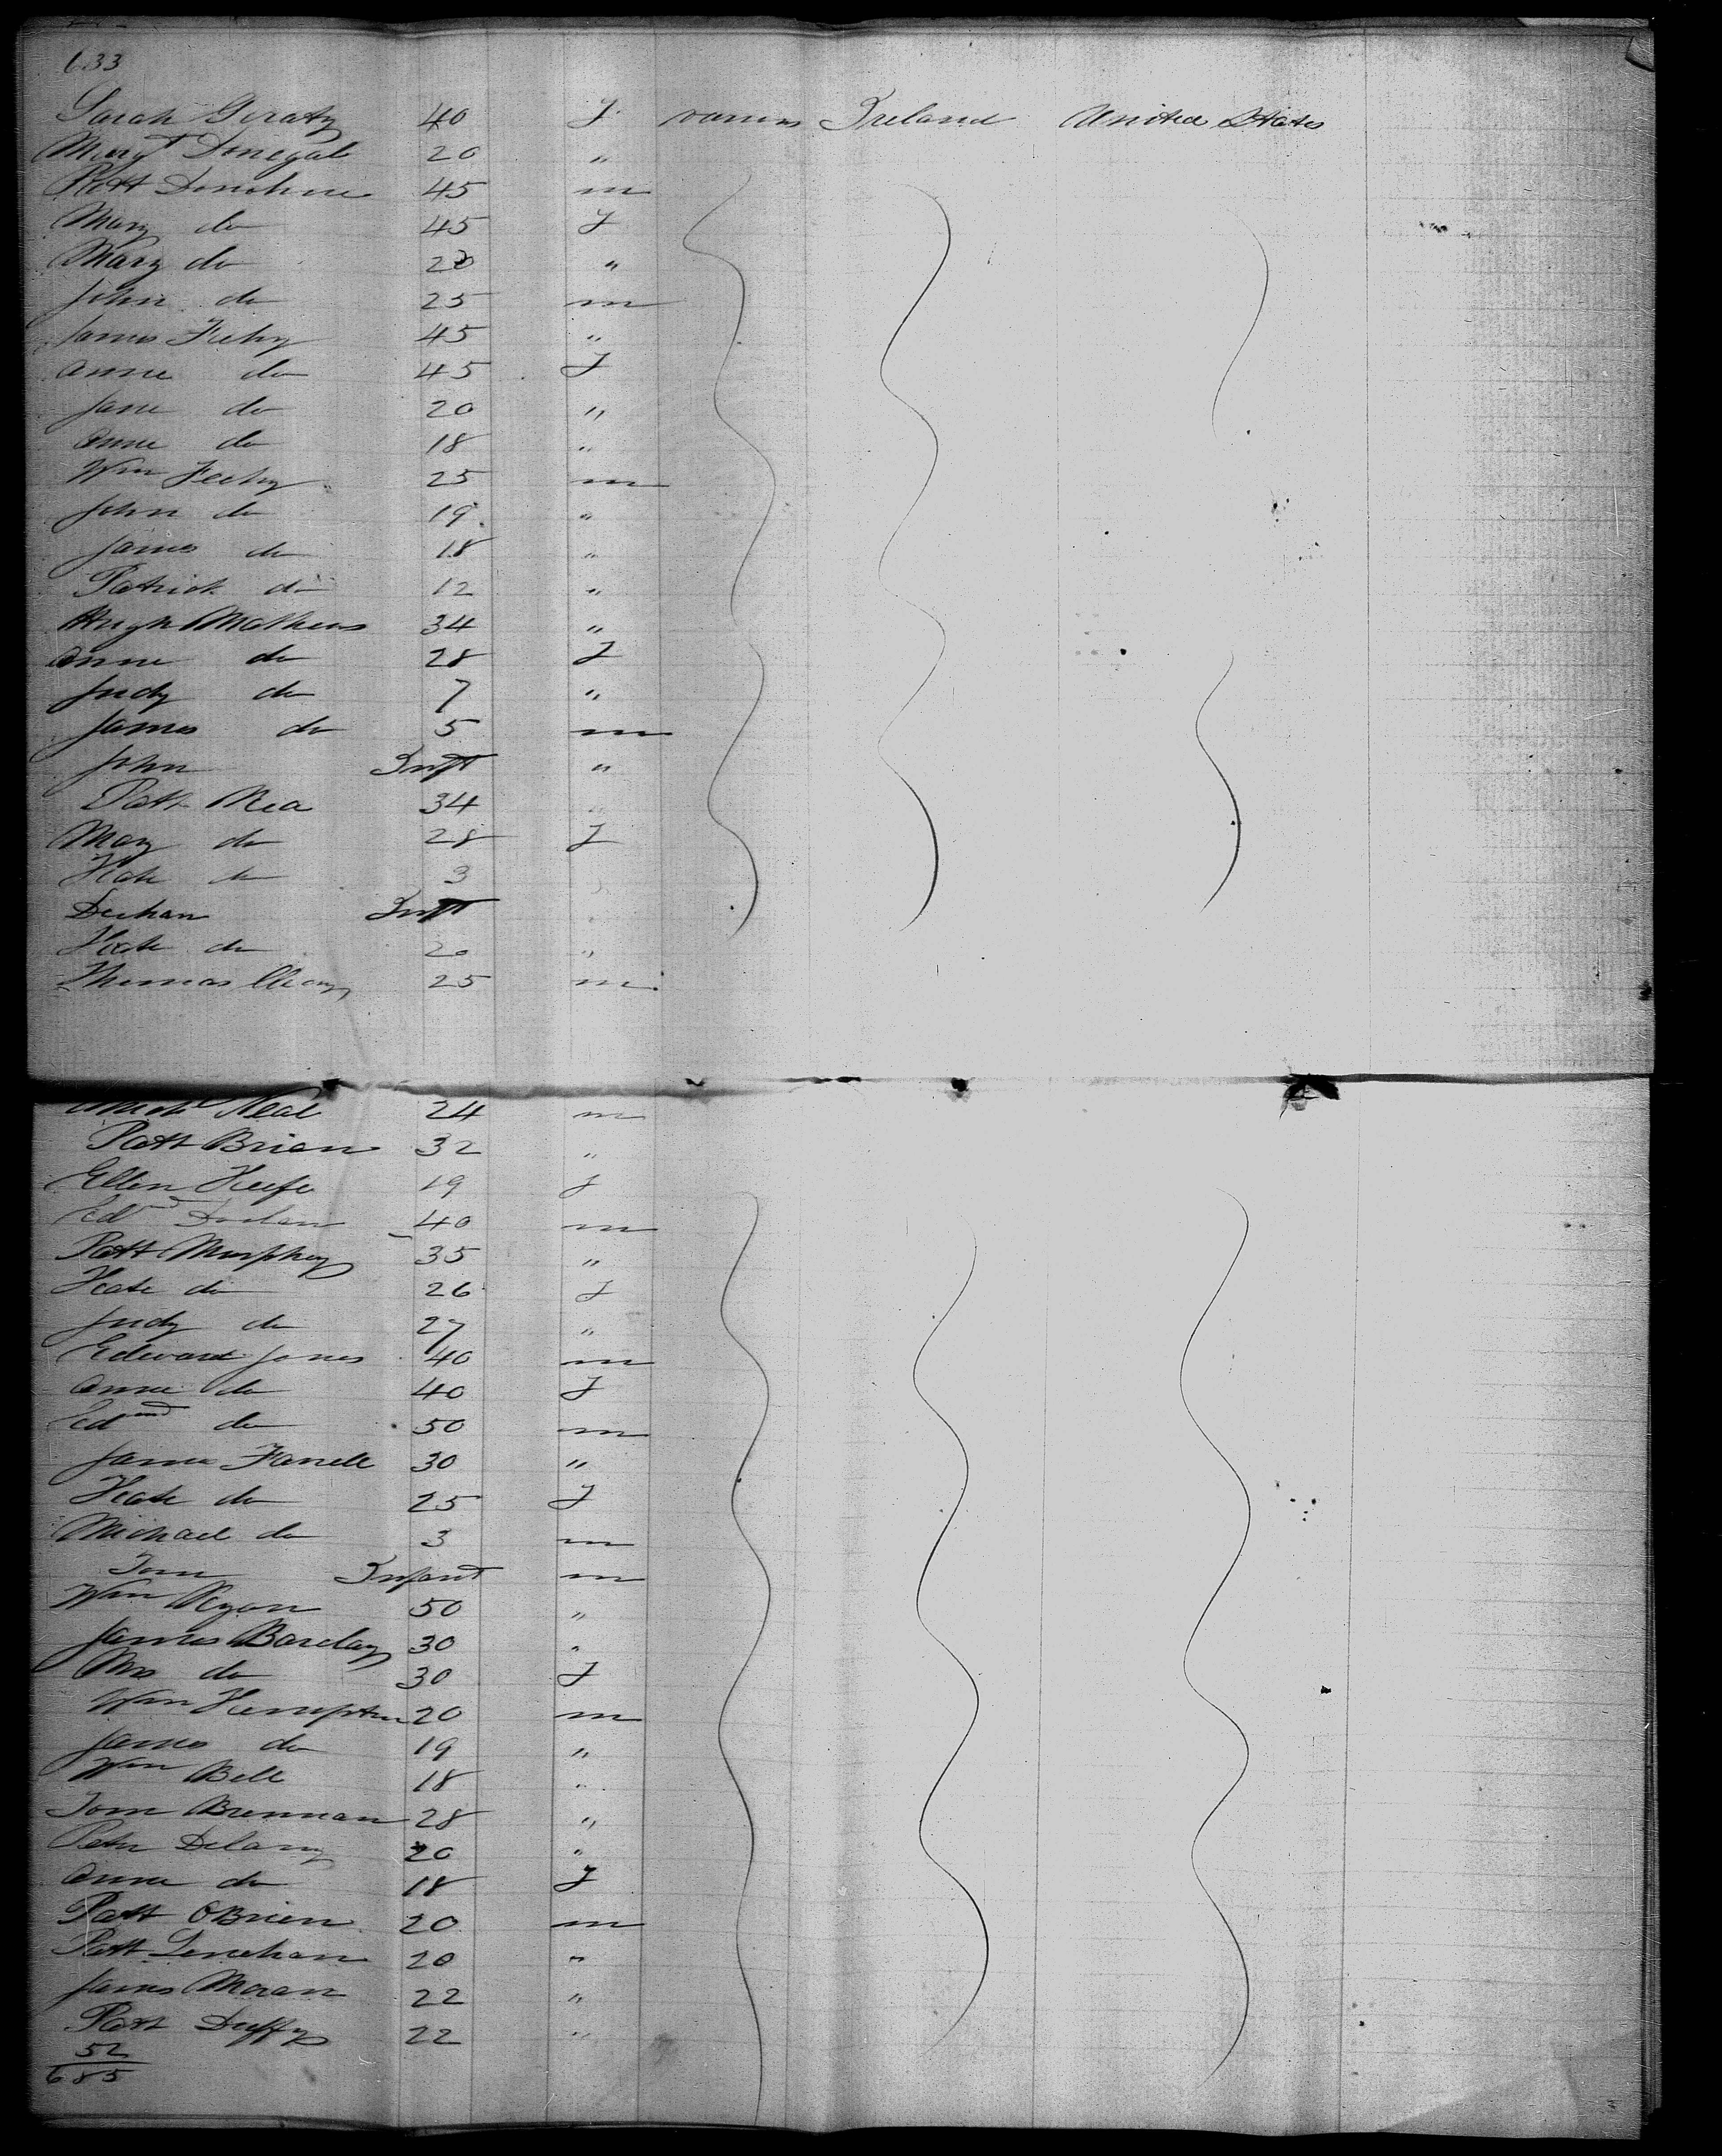 633
Sarah Geraty 40 f various Ireland United States
Margt Donegal 20 "
Patt Donohue 45 m
Mary do 45 f
Mary do 20 "
John do 25 m
James Feehy 45 "
Anne do 45 f
Jane do 20 "
Anne do 18 "
Wm Feehy 25 m
John do 19 "
James do 18 "
Patrick do 12 "
Hugh Mathews 34 "
Anne do 28 f
Judy do 7 "
James do 5 m
John Inft "
Patt Rea 34
Mary do 28 f
Kate do 3
Inft
Kate do 20 "
Thomas 25 m
Neal 24 m
Patt Brien 32 "
Ellen Keefe 19 f
Edwd 40 m
Patt Murphey 35 "
Kate do 26 f
Judy do 27 "
Edward Jones 40 m
Anne do 40 f
Edmd do 50 m
James Farrell 30 "
Kate do 25 f
Michael do 3 m
Tom Infant m
Wm Ryan 50 "
James Barclay 30 "
Mrs do 30 f
Wm Hempton 20 m
James do 19 "
Wm Bell 18 "
Tom Brennan 28 "
Peter Delany 20 "
Anne do 18 f
Patt OBrien 20 m
Patt Lenehan 20 "
James Moran 22 "
Patt Duffy 22 "
52
685